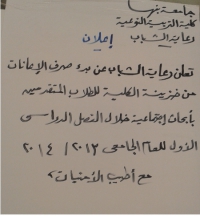 جامعة بنها
كلية التربية النوعية
رعاية الشباب
إعلان
تعلن رعاية الشباب عن بدء صرف الإعانات
من خزينة الكلية للطلاب المتقدمين
بأبحاث اجتماعية خلال الفصل الدراسى
الأول للعام الجامعى ٢٠١٣ / ٢٠١٤
مع أطيب الأمنيات ،